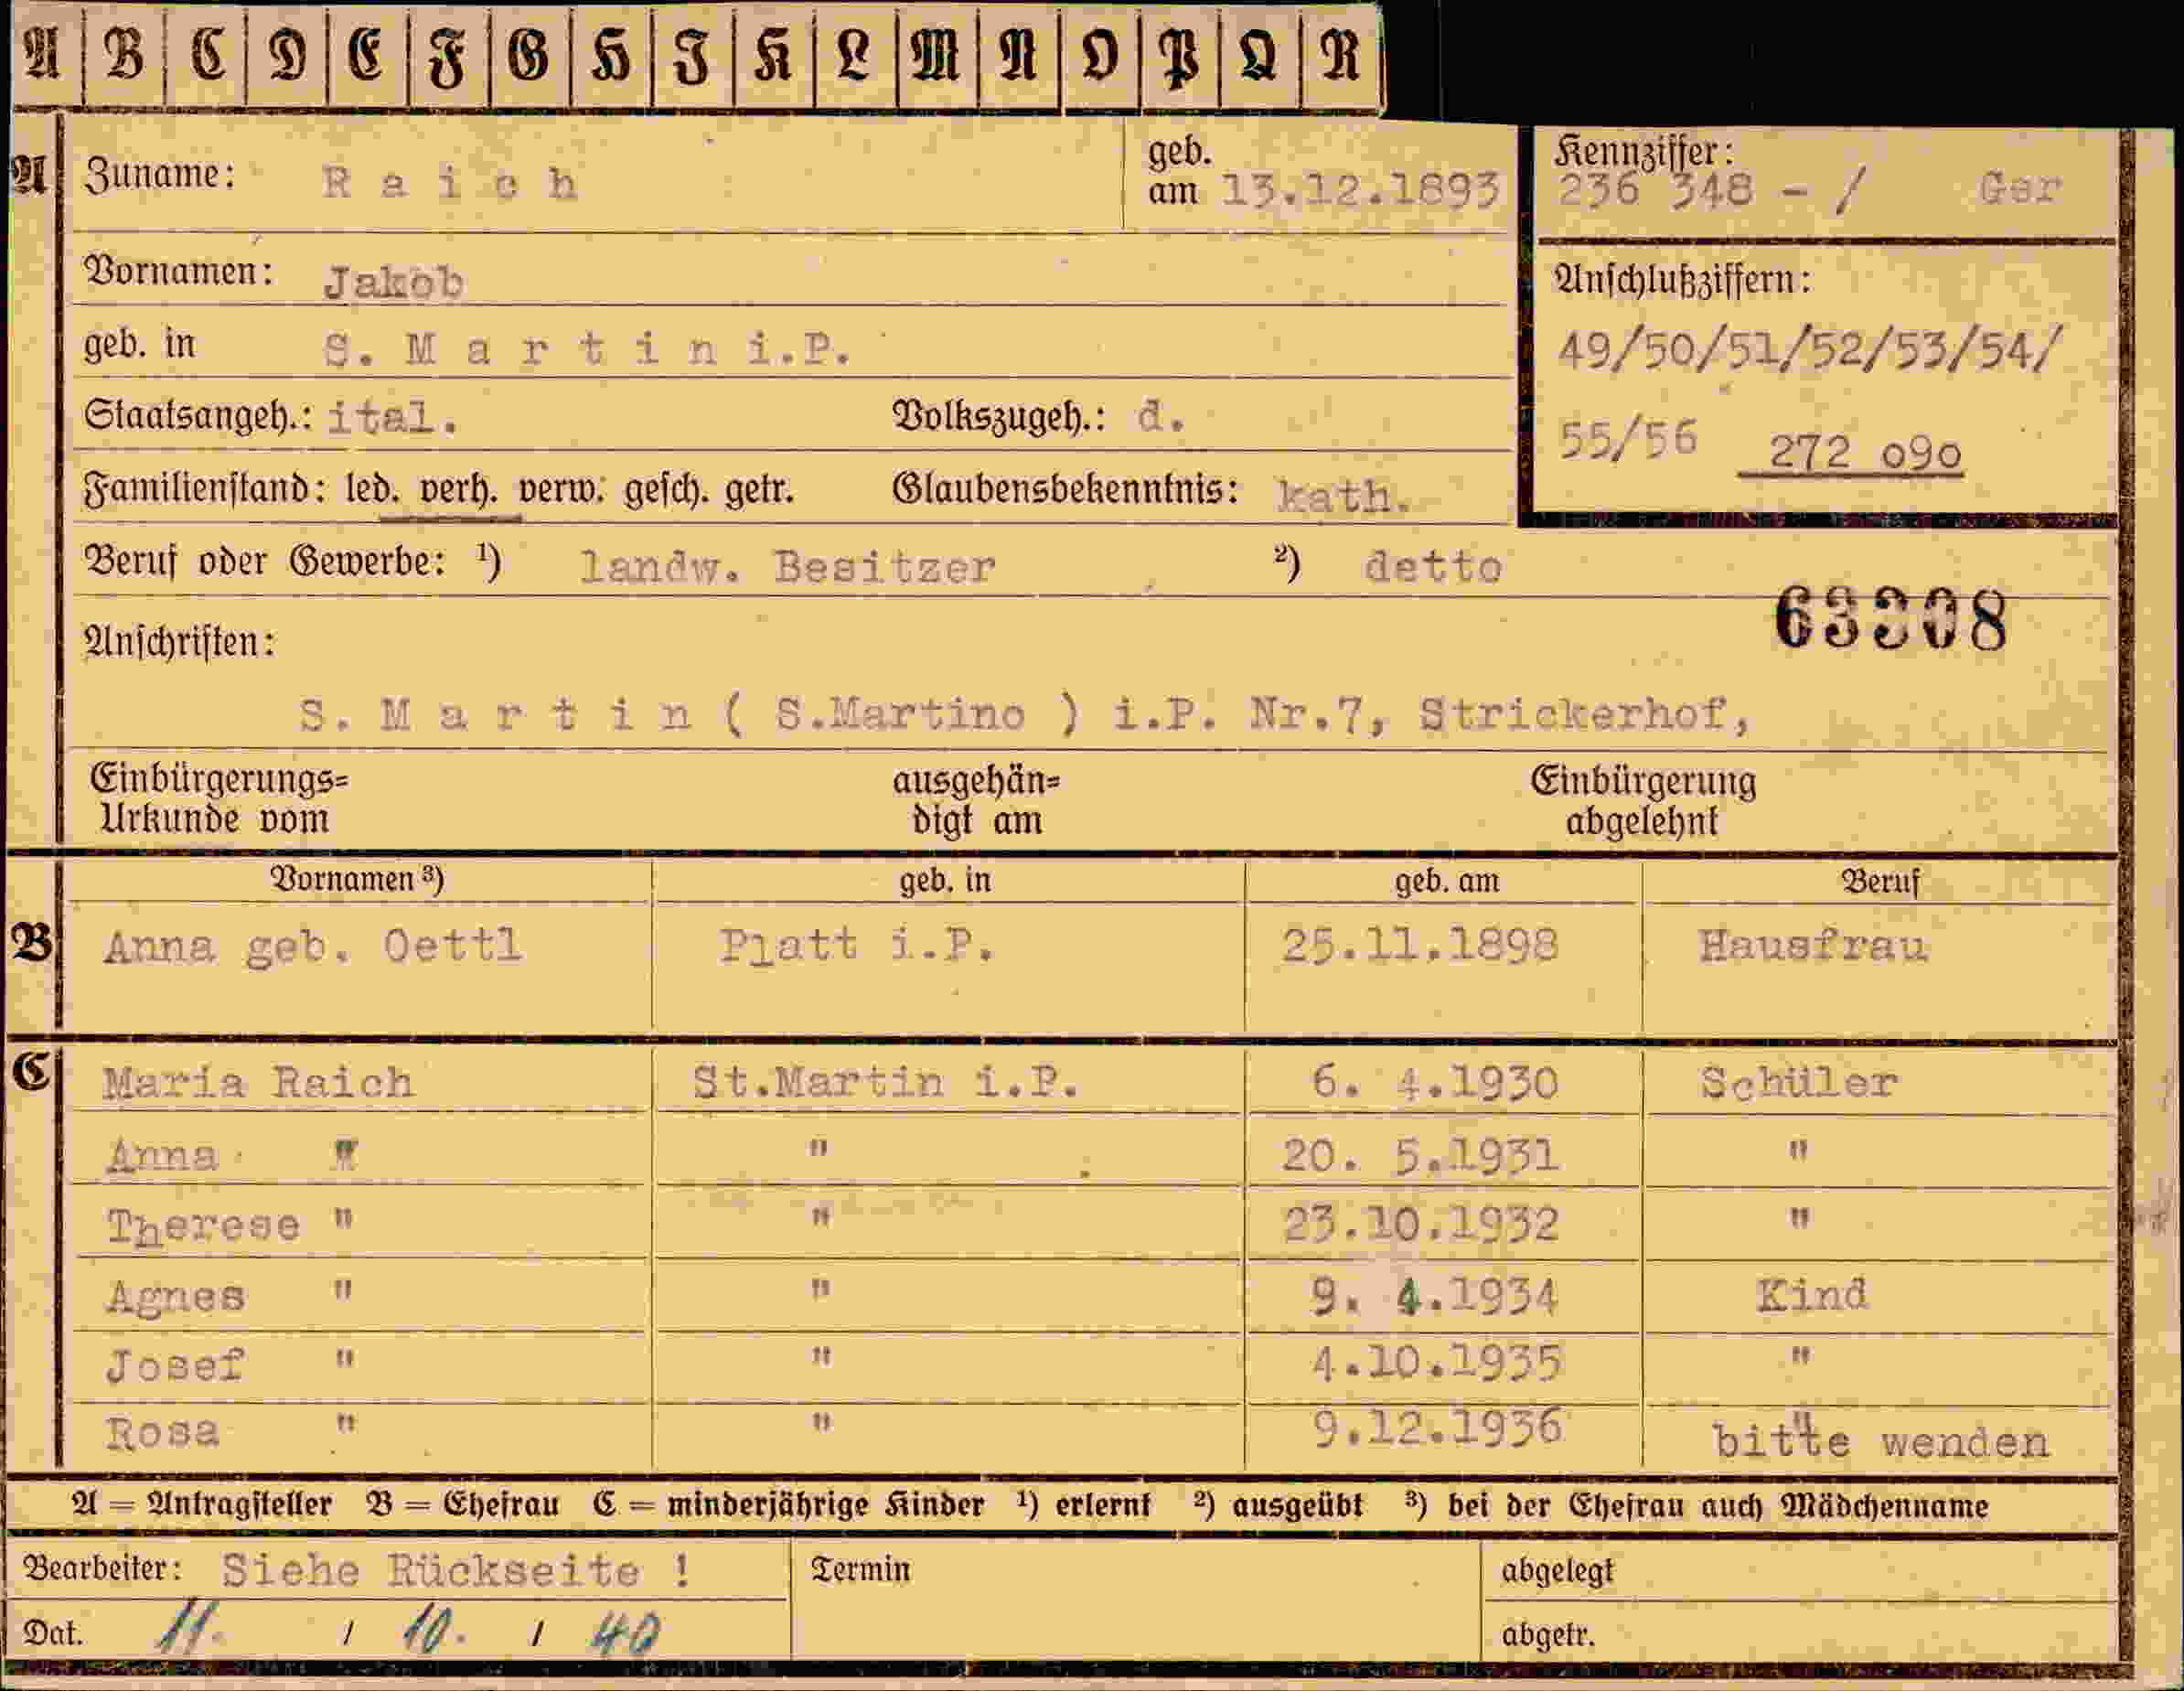 A B C D E F G H I K L M N O P Q R
A Zuname: Raich geb. am 13.12.1893 Kennziffer: 236 348 - / Ger
Vornamen: Jakob Anschlußziffern:
geb. in S. Martin i.P. 49/50/51/52/53/54/
Staatsangeh.: ital. Volkszugeh.: d. 55/56 272 090
Familienstand: led. verh. verw. gesch. getr. Glaubensbekenntnis: kath.
Beruf oder Gewerbe: ¹) landw. Besitzer ²) detto
63308
Anschriften:
S. Martin ( S.Martino ) i.P. Nr.7, Strickerhof,
Einbürgerungs= ausgehän= Einbürgerung
Urkunde vom digt am abgelehnt
Vornamen ³) geb. in geb. am Beruf
B Anna geb. Oettl Platt i.P. 25.11.1898 Hausfrau
C Maria Raich St.Martin i.P. 6. 4.1930 Schüler
Anna " " 20. 5.1931 "
Therese " " 23.10.1932 "
Agnes " " 9. 4.1934 Kind
Josef " " 4.10.1935 "
Rosa " " 9.12.1936 "
bitte wenden
A = Antragsteller B = Ehefrau C = minderjährige Kinder ¹) erlernt ²) ausgeübt ³) bei der Ehefrau auch Mädchenname
Bearbeiter: Siehe Rückseite ! Termin abgelegt
Dat. 11. / 10. / 40 abgetr.